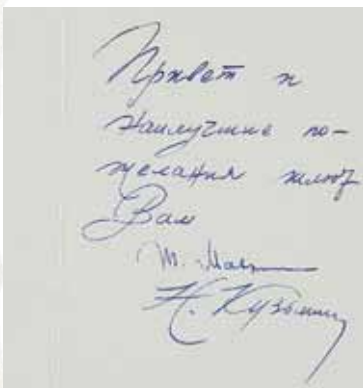 Привет и
наилучшие по-
желания шлют
Вам
Т. Мав
Н. Кузьмин